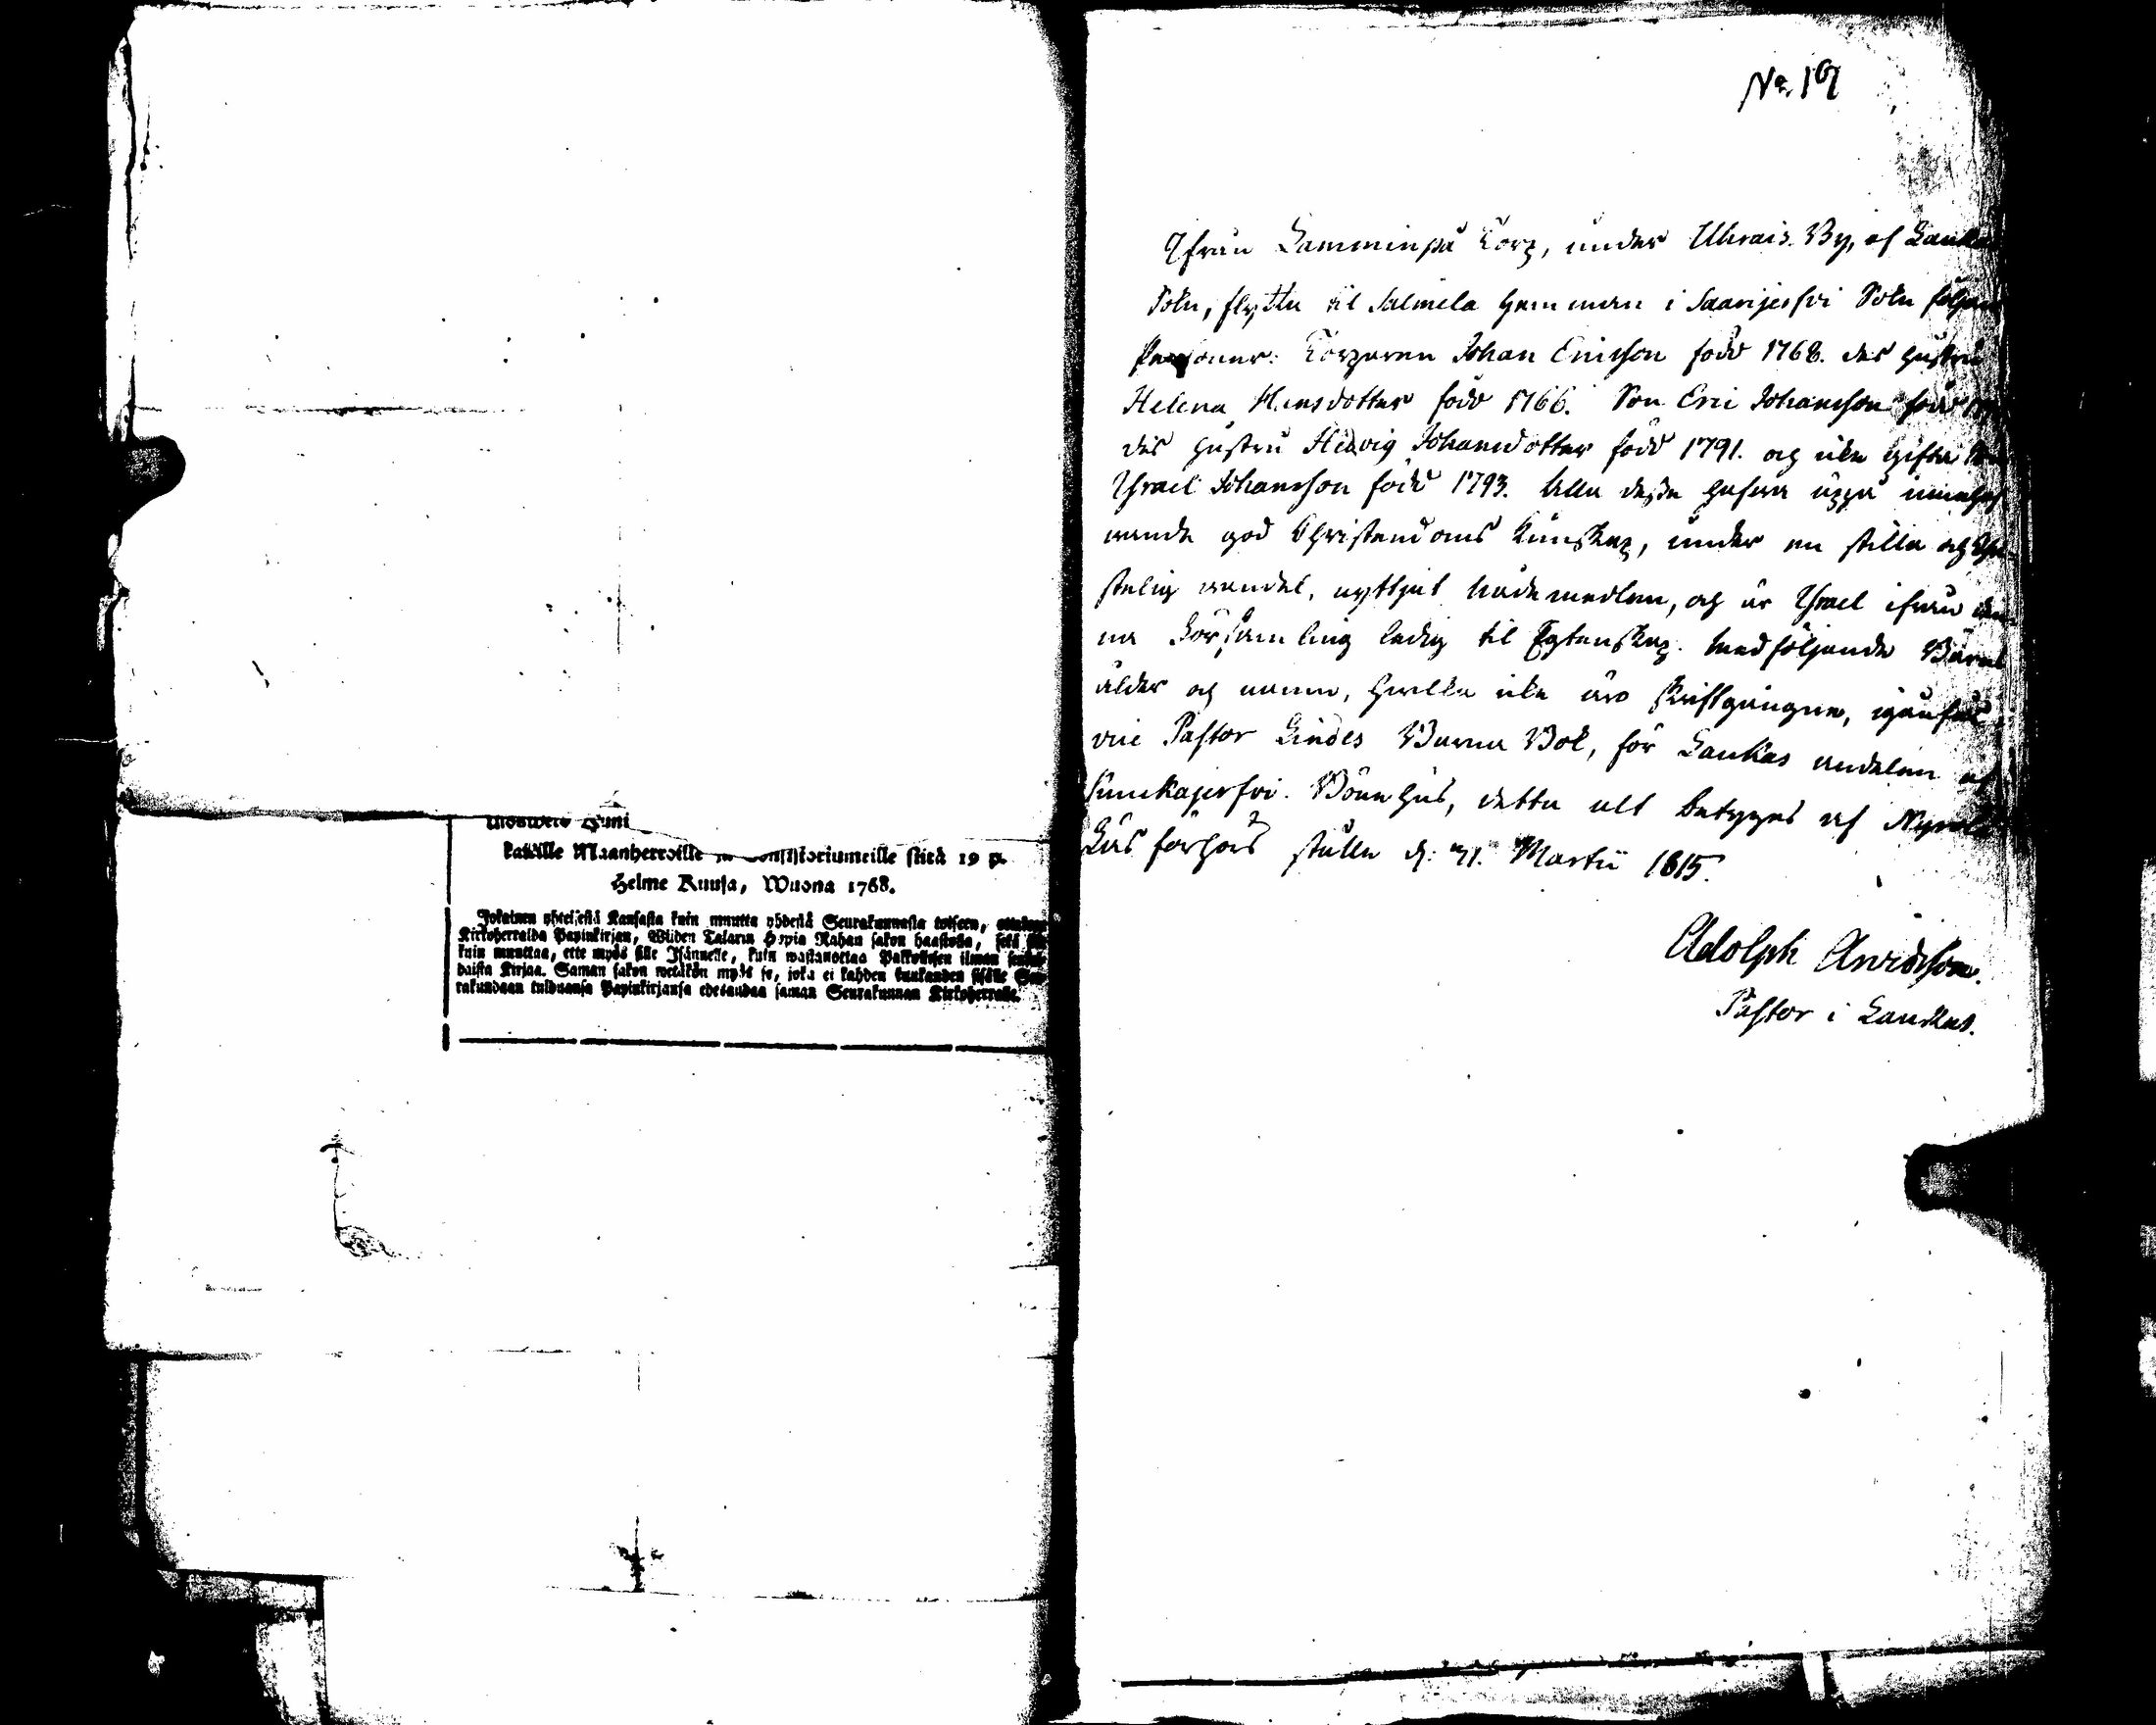 kaikille Maanherroille ja Consistoriumeille siitä 19 p.
Helme Kuusa, Wuona 1768.
Jokainen yhteisestä Kansasta kuin muutta yhdestä Seurakunnasta toiseen,
Kirkoherralda Papinkirjan, Wijden Talarin Hopia Rahan sakon haastolla, sekä
kuin muuttaa, ette myös sille Isännelle, kuin wastanottaa Palkollisen ilman
daista Kirjaa. Saman sakon wetäkön myös se, joka ei kahden kuukauden sisälle Seu-
rakundaan tulduansa Papinkirjansa edesandaa saman Seurakunnan Kirkoherralle.
No. 19
Ifrån Lamminpä Torp, under Uhrais By, af Laukas
Sokn, flytta til Salmela Hemman i Saarijerfvi Sokn följande
Personer: Torparen Johan Ericsson född 1768. des Hustru
Helena Hinsdotter född 1766. Son Eric Johansson född
des Hustru Hedvig Johansdotter född 1791. och icke gifta Son
Israel Johansson född 1793. Alla desse hafva uppå innehaf
wande god Christendoms Kunskap, under en stilla och Chri
stelig wandel, nyttjat Nådemedlen, och är Israel ifrån den
na Församling ledig til Egtenskap. Medföljande Barns
ålder och namn, hwilka icke äro skriftgångne,
vice Pastor Lindes Barna Bok, för Laukas andelen af
Sumiajerfvi Bönehus, detta alt betygas af
Läsförhörs ställe d. 21. Martii 1815.
Adolph Arvidsson.
Pastor i Laukas.